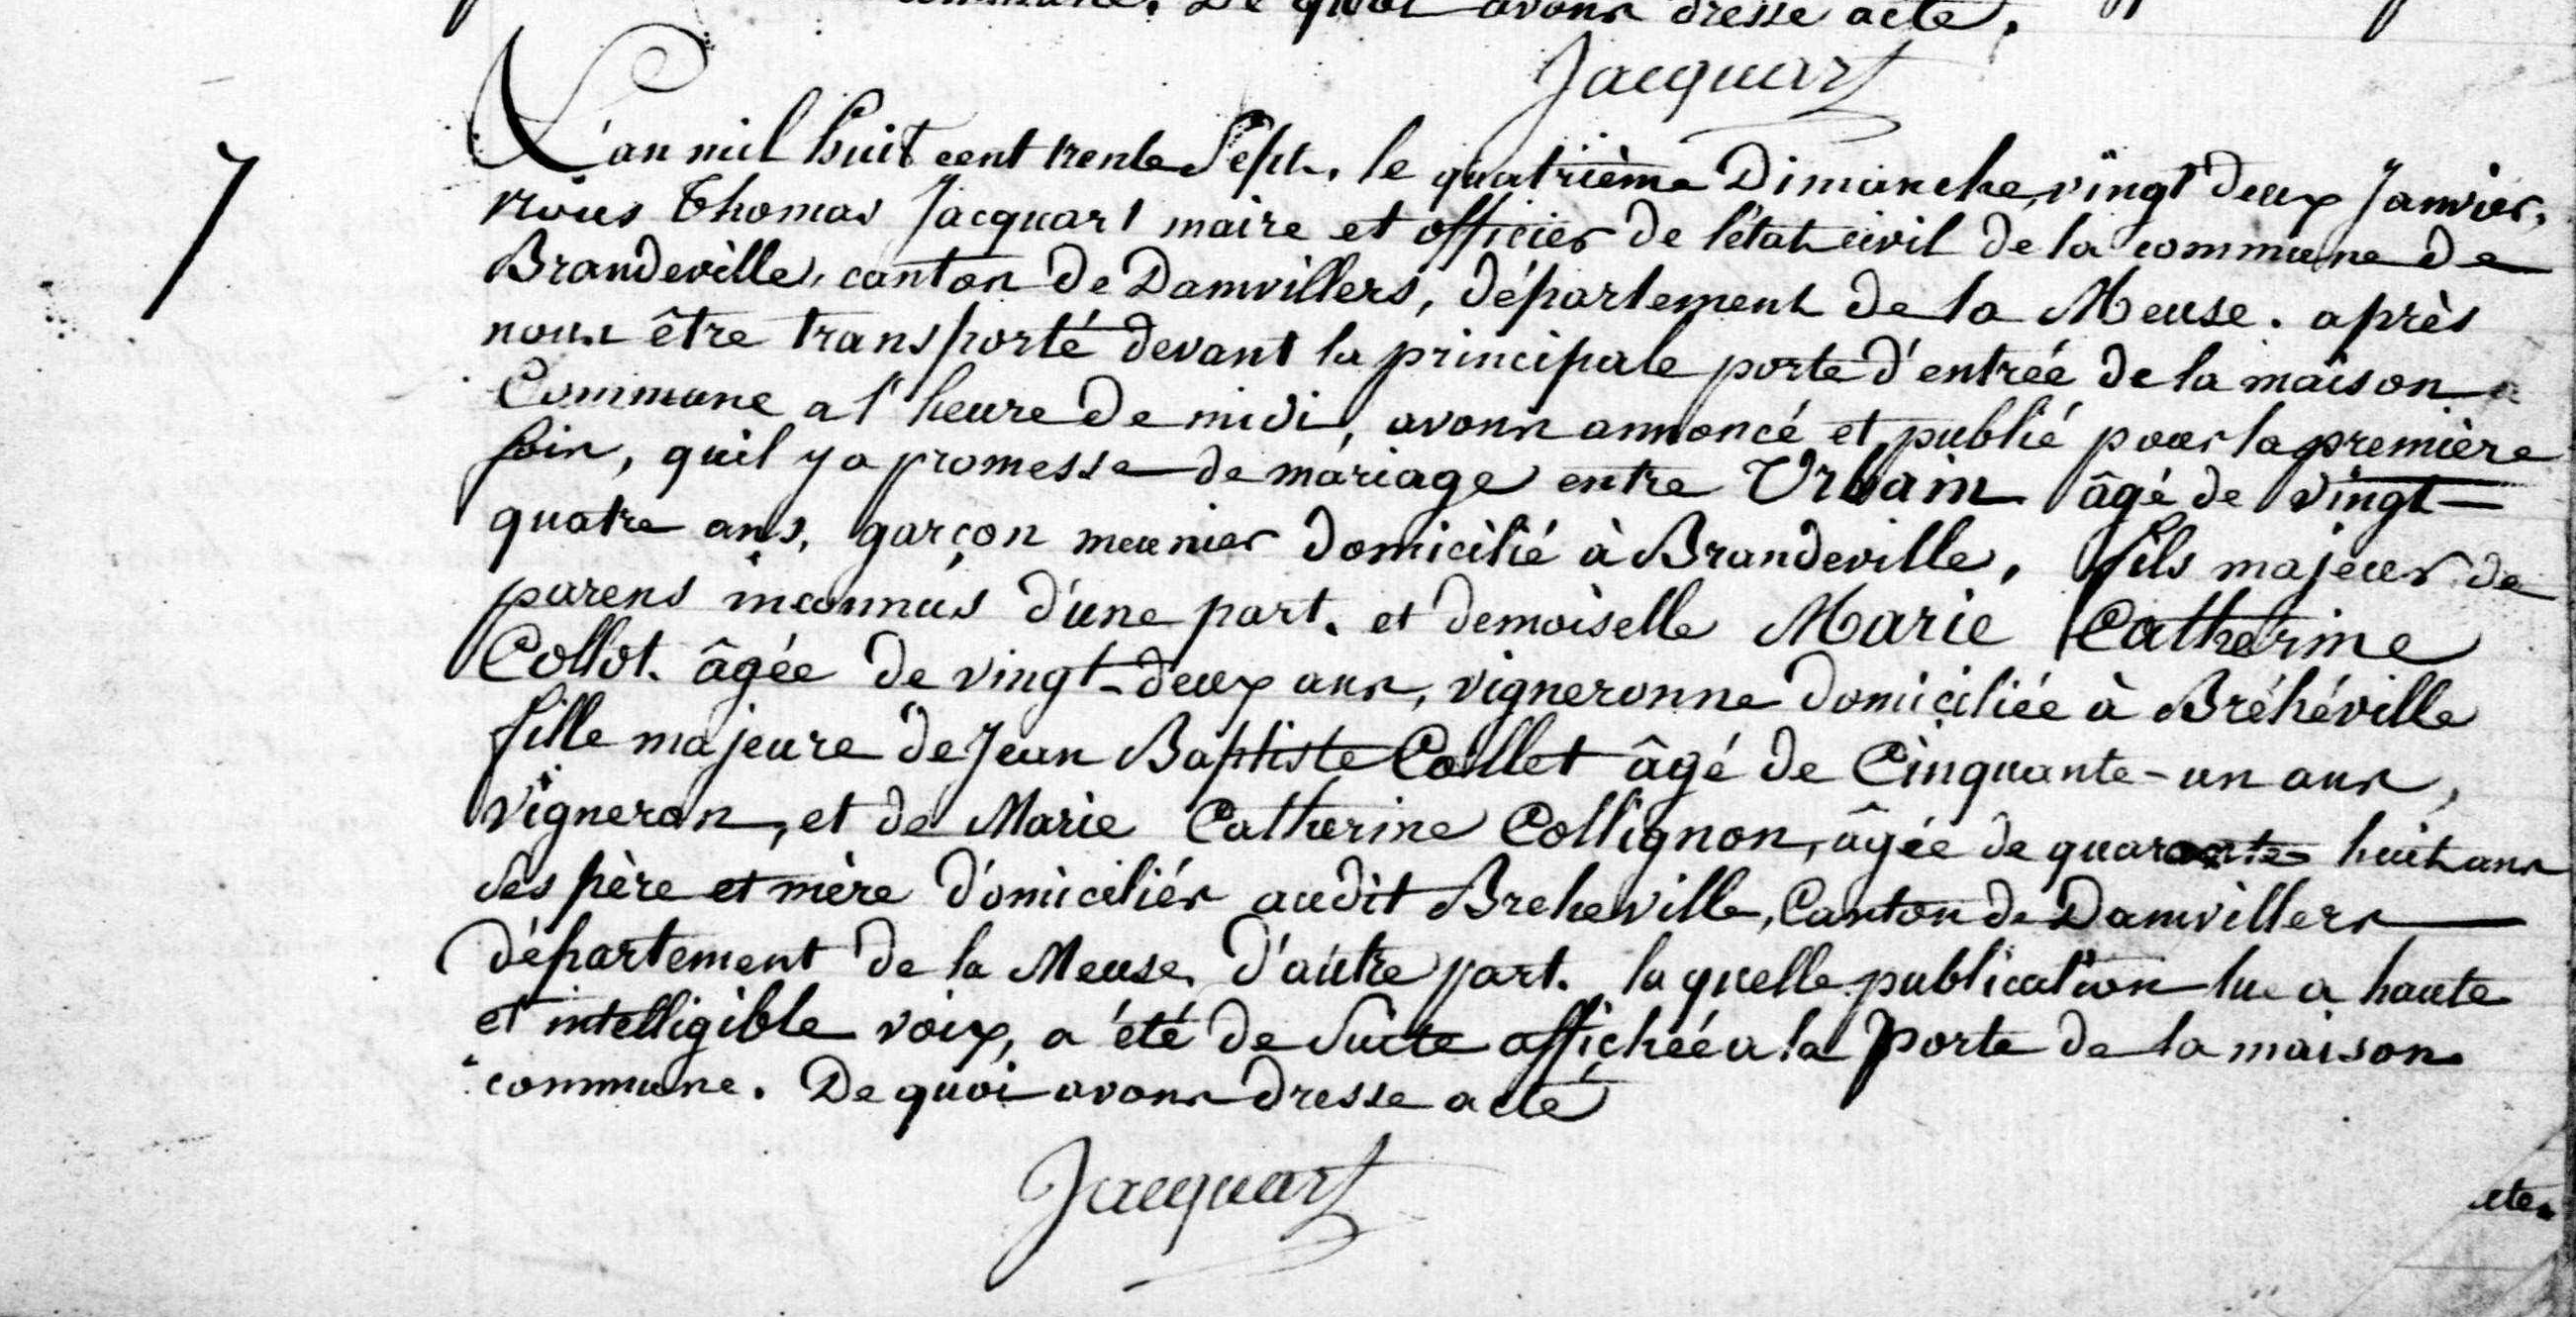 commune. De quoi avons dresse acte.
Jacquart
L'an mil huit cent trente Sept. le quatrième Dimanche, vingt deux Janvier,
nous Thomas Jacquart maire et officier de l'état civil de la commune de
Brandeville, canton de Damvillers, département de la Meuse. après
nous être transporté devant la principale porte d'entrée de la maison
7
Commune a l'heure de midi, avons annoncé et publié pour la première
fois, quil y a promesse de mariage entre Urbain âgé de vingt-
quatre ans, garçon meunier domicilié à Brandeville, fils majeur de
parens inconnus d'une part. et demoiselle Marie Catherine
Collot. âgée de vingt-deux ans, vigneronne domiciliée à Bréhéville
fille majeure de Jean Baptiste Collet âgé de Cinquante-un ans,
vigneron, et de Marie Catherine Collignon, âgée de quarante huit ans
ses père et mère domiciliés audit Breheville, Canton de Damvillers
département de la Meuse, d'autre part. la quelle publication lue a haute
et intelligible voix, a été de suite affichée a la porte de la maison
commune. De quoi avons dresse acte
Jacquart